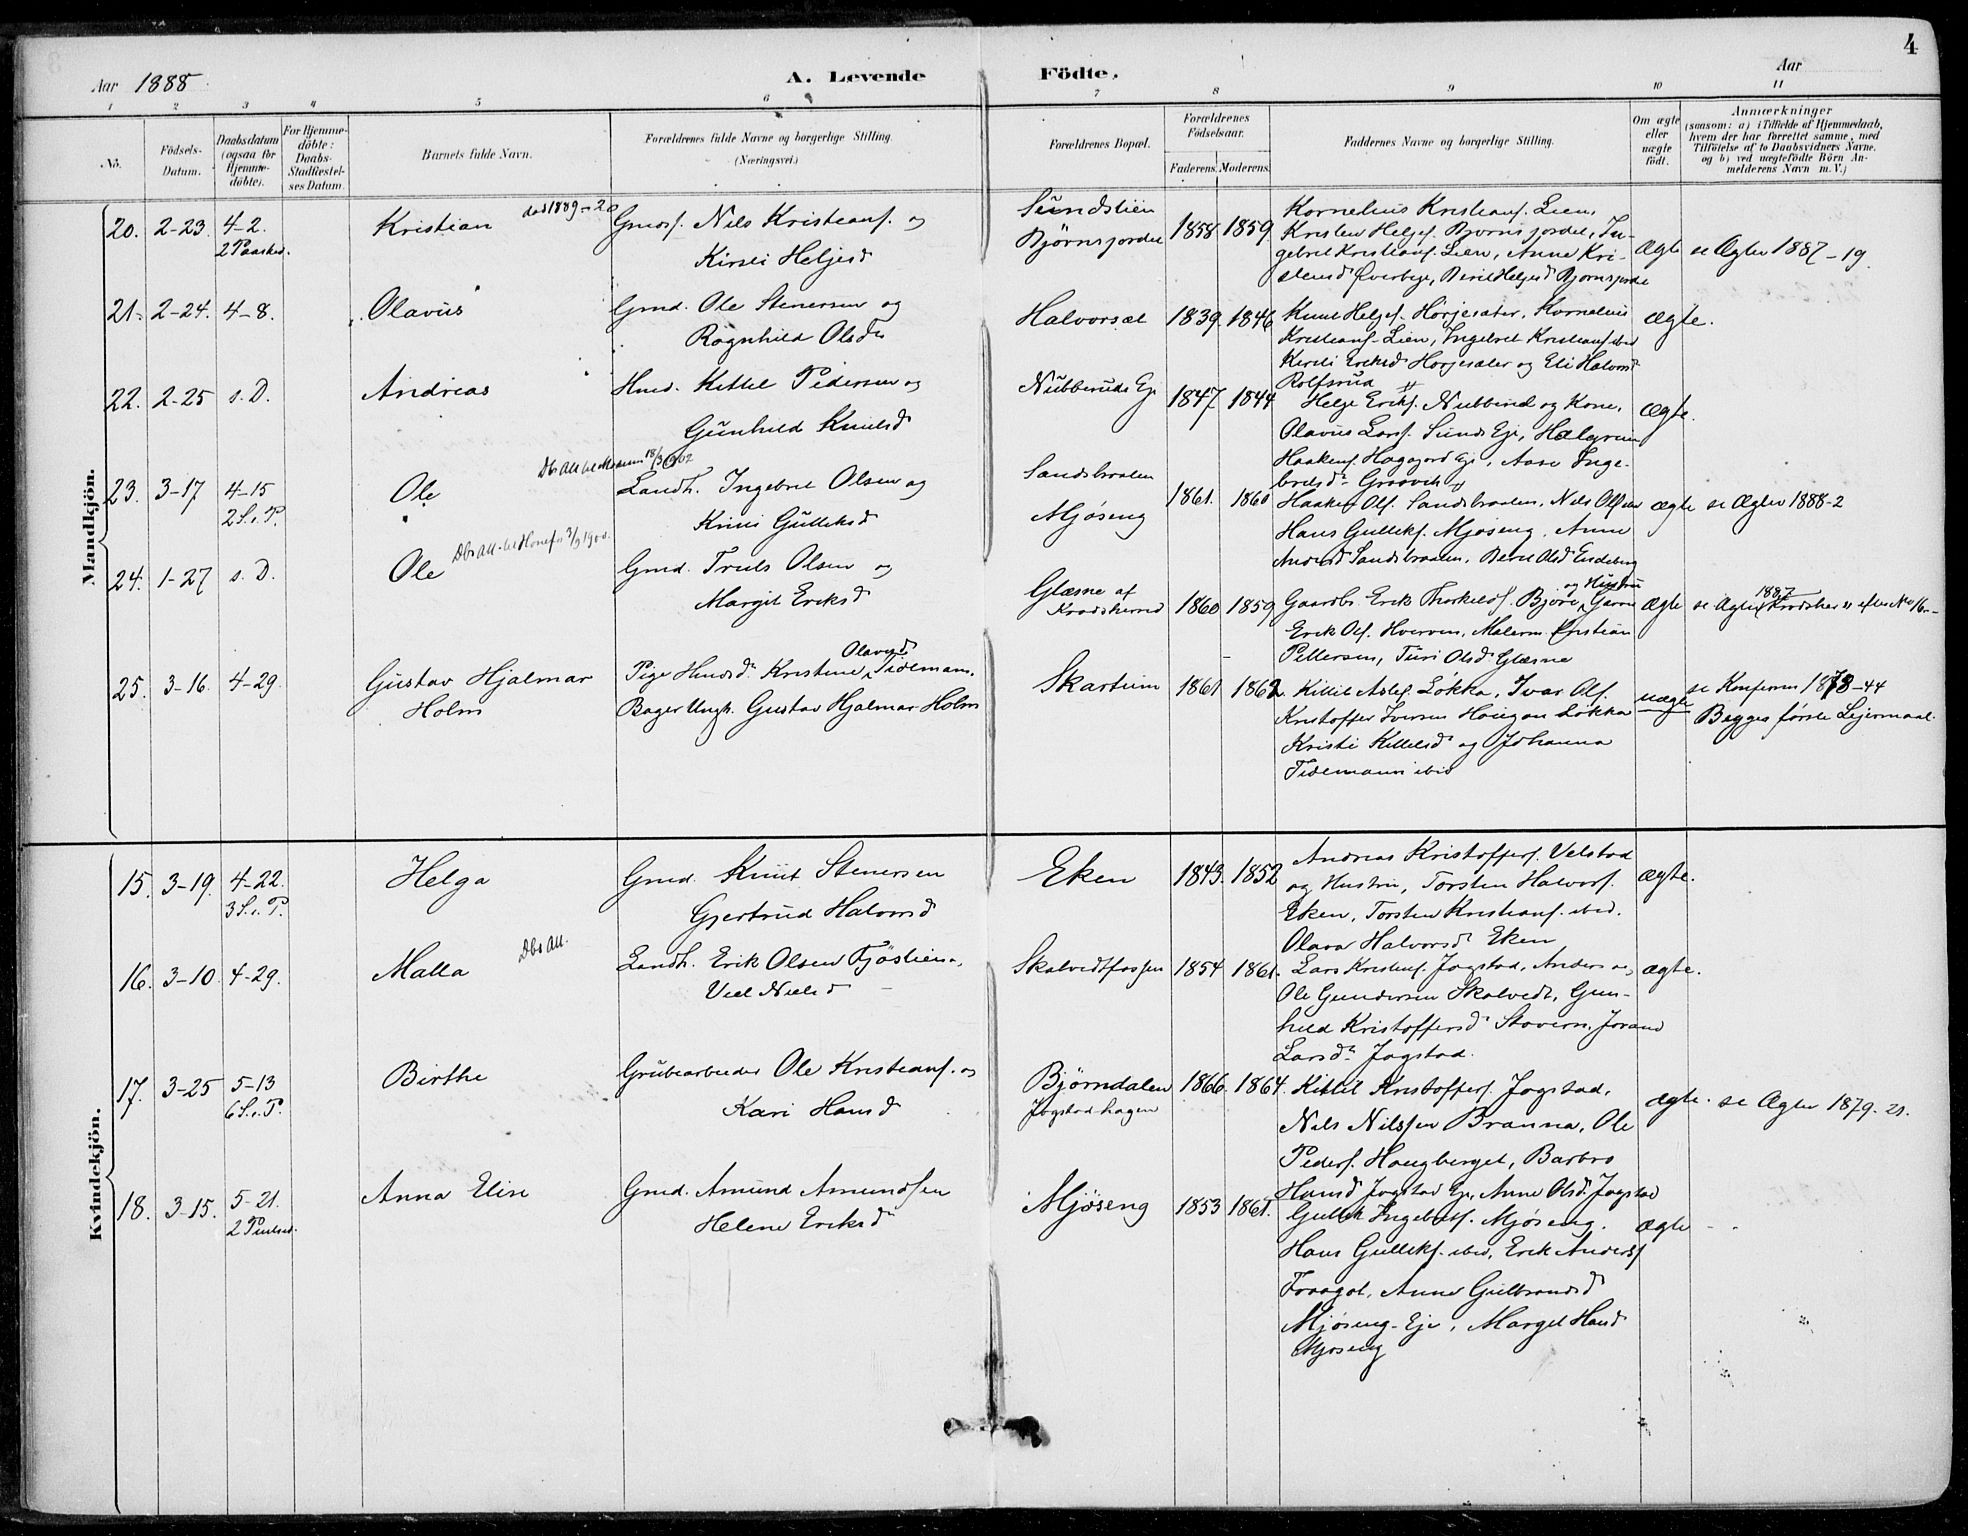 4
Aar 1888.
A. Levende Födte.
Aar
1 2 3 4 5 6 7 8 9 10 11
No.
Födsels-Datum.
Daabsdatum (ogsaa for Hjemme-döbte).
For Hjemme-döbte: Daabs-Stadfæstel-ses Datum.
Barnets fulde Navn.
Forældrenes fulde Navne og borgerlige Stilling. (Næringsvei.)
Forældrenes Bopæl.
Forældrenes Födselsaar.
Faderens. Moderens.
Faddernes Navne og borgerlige Stilling.
Om ægte eller uægte födt.
Anmærkninger
(saasom: a) i Tilfælde af Hjemmedaab, hvem der har forrettet samme, med Tilföielse af to Daabsvidners Navne, og b) ved uægtefödte Börn An-melderens Navn m. V.)
Mandkjön.
20. 2-23 4-2. 2 Paasked. Kristian død 1889-2 Gmdsf. Nils Kristiansf. og
Kirsti Heljesd
Sundstien
Bjørnsjordet 1858 1859
Kornelius Kristiansf. Lien,
Kristen Helgesf. Bjørnsjordet, In-
gebret Kristiansf. Lien, Anne Kri-
stensd Øverbye, Berit Helgesd Bjørnsjordet
Ægte se Ægter 1887-19.
21. 2-24. 4-8. Olavus Gmd. Ole Stenersen og
Rognhild Olsdr
Halvorsæt 1839. 1846
Knut Helgesf. Horjesæter, Kornelius
Kristiansf. Lien, Ingebret Kristiansf. ibid
Kirsti Eriksd Horjesæter og Eli Halvorsd
Rolfsrud
ægte.
22. 2-25 s. D. Andreas Hmd. Kittel Pedersen og
Gunhild Knutsd
Nubberuds Eje 1847 1844
Helge Eriksf. Nubberud og Kone,
Olavus Larsf. Sunds Eje, Halgrim
Haakensf. Hagajord Eje, Aase Inge-
bretsd
ægte.
23. 3-17 4-15 2 S. e. P. Ole Landh. Ingebret Olsen og
Gulleksd
Sandsbraaten
Mjøseng 1861. 1860
Haaken Olsf. Sandsbraaten, Nils Olsen
Hans Gulleksf. Mjøseng, Anne
Andersd Sandsbraaten, Berit Olsd
ægte se Ægter 1888-2
24. 1-27 s. D. Ole Gmd. Truls Olsen og
Margit Eriksd
Glæsne af
Krødsherred 1860 1859
Gaardbr. Erik Thorkeldsf. Bjøre og Hustru
Erik Olsf. Hverven, Malerm Kristian
Pettersen, Turi Olsd Glæsne
Ægte se Ægter 1887
25. 3-16. 4-29. Gustav Hjalmar
Holm
Pige Hmdsd. Kristine Olavesd Tidemans.
Bager Ungk. Gustav Hjalmar Holm
Skartum 1861 1862.
Kittil Aslesf. Løkka, Ivar Olsf.
Kristoffer Iversen Haugan Løkka
Kristi Kittelsd og Johanna
Tidemann ibid
uægte se Konferm 1878-44
Begges første Lejermaal.
Kvindekjön.
15. 3-19. 4-22. 3 S. e. P. Helga Gmd. Knut Stenersen
Gjertrud Halvorsd
Eken 1843. 1852
Andreas Kristoffersf. Velstad
og Hustru, Torsten Halvorsf.
Eken, Torsten Kristiansf. ibid.
Olava Halvorsd Eken
ægte.
16. 3-10 4-29. Malla Dbs Att. Landh. Erik Olsen
Nielsd
Skalvedtfossen 1854 1861.
Lars Kristensf. Jogstad, Anders og
Ole Gundersen Skalvedt, Gun-
hild Kristoffersd Stovern, Jorand
Larsd. Jogstad.
ægte.
17. 3-25 5-13 6 S. e. P. Birthe Grubearbeider Ole Kristiansf. og
Kari Hansd
Bjørndalen
Jogstadhagen 1866. 1864.
Kittil Kristoffersf. Jogstad,
Nils Nilssen Branna, Ole
Pedersf. Haugberget, Barbro
Hansd Jogstad Eje, Anne Olsd. Jogstad
ægte. se Ægter 1879-21.
18. 3-15. 5-21. 2 Pintsed. Anna Elise Gmd. Amund Amundsen
Helene Eriksd
Mjøseng 1853 1861.
Gullik Ingebretsf. Mjøseng.
Hans Gulleksf. ibid, Erik Andersf
Anne Gulbrandsd
Mjøseng-Eje, Margit Hansd
Mjøseng
ægte